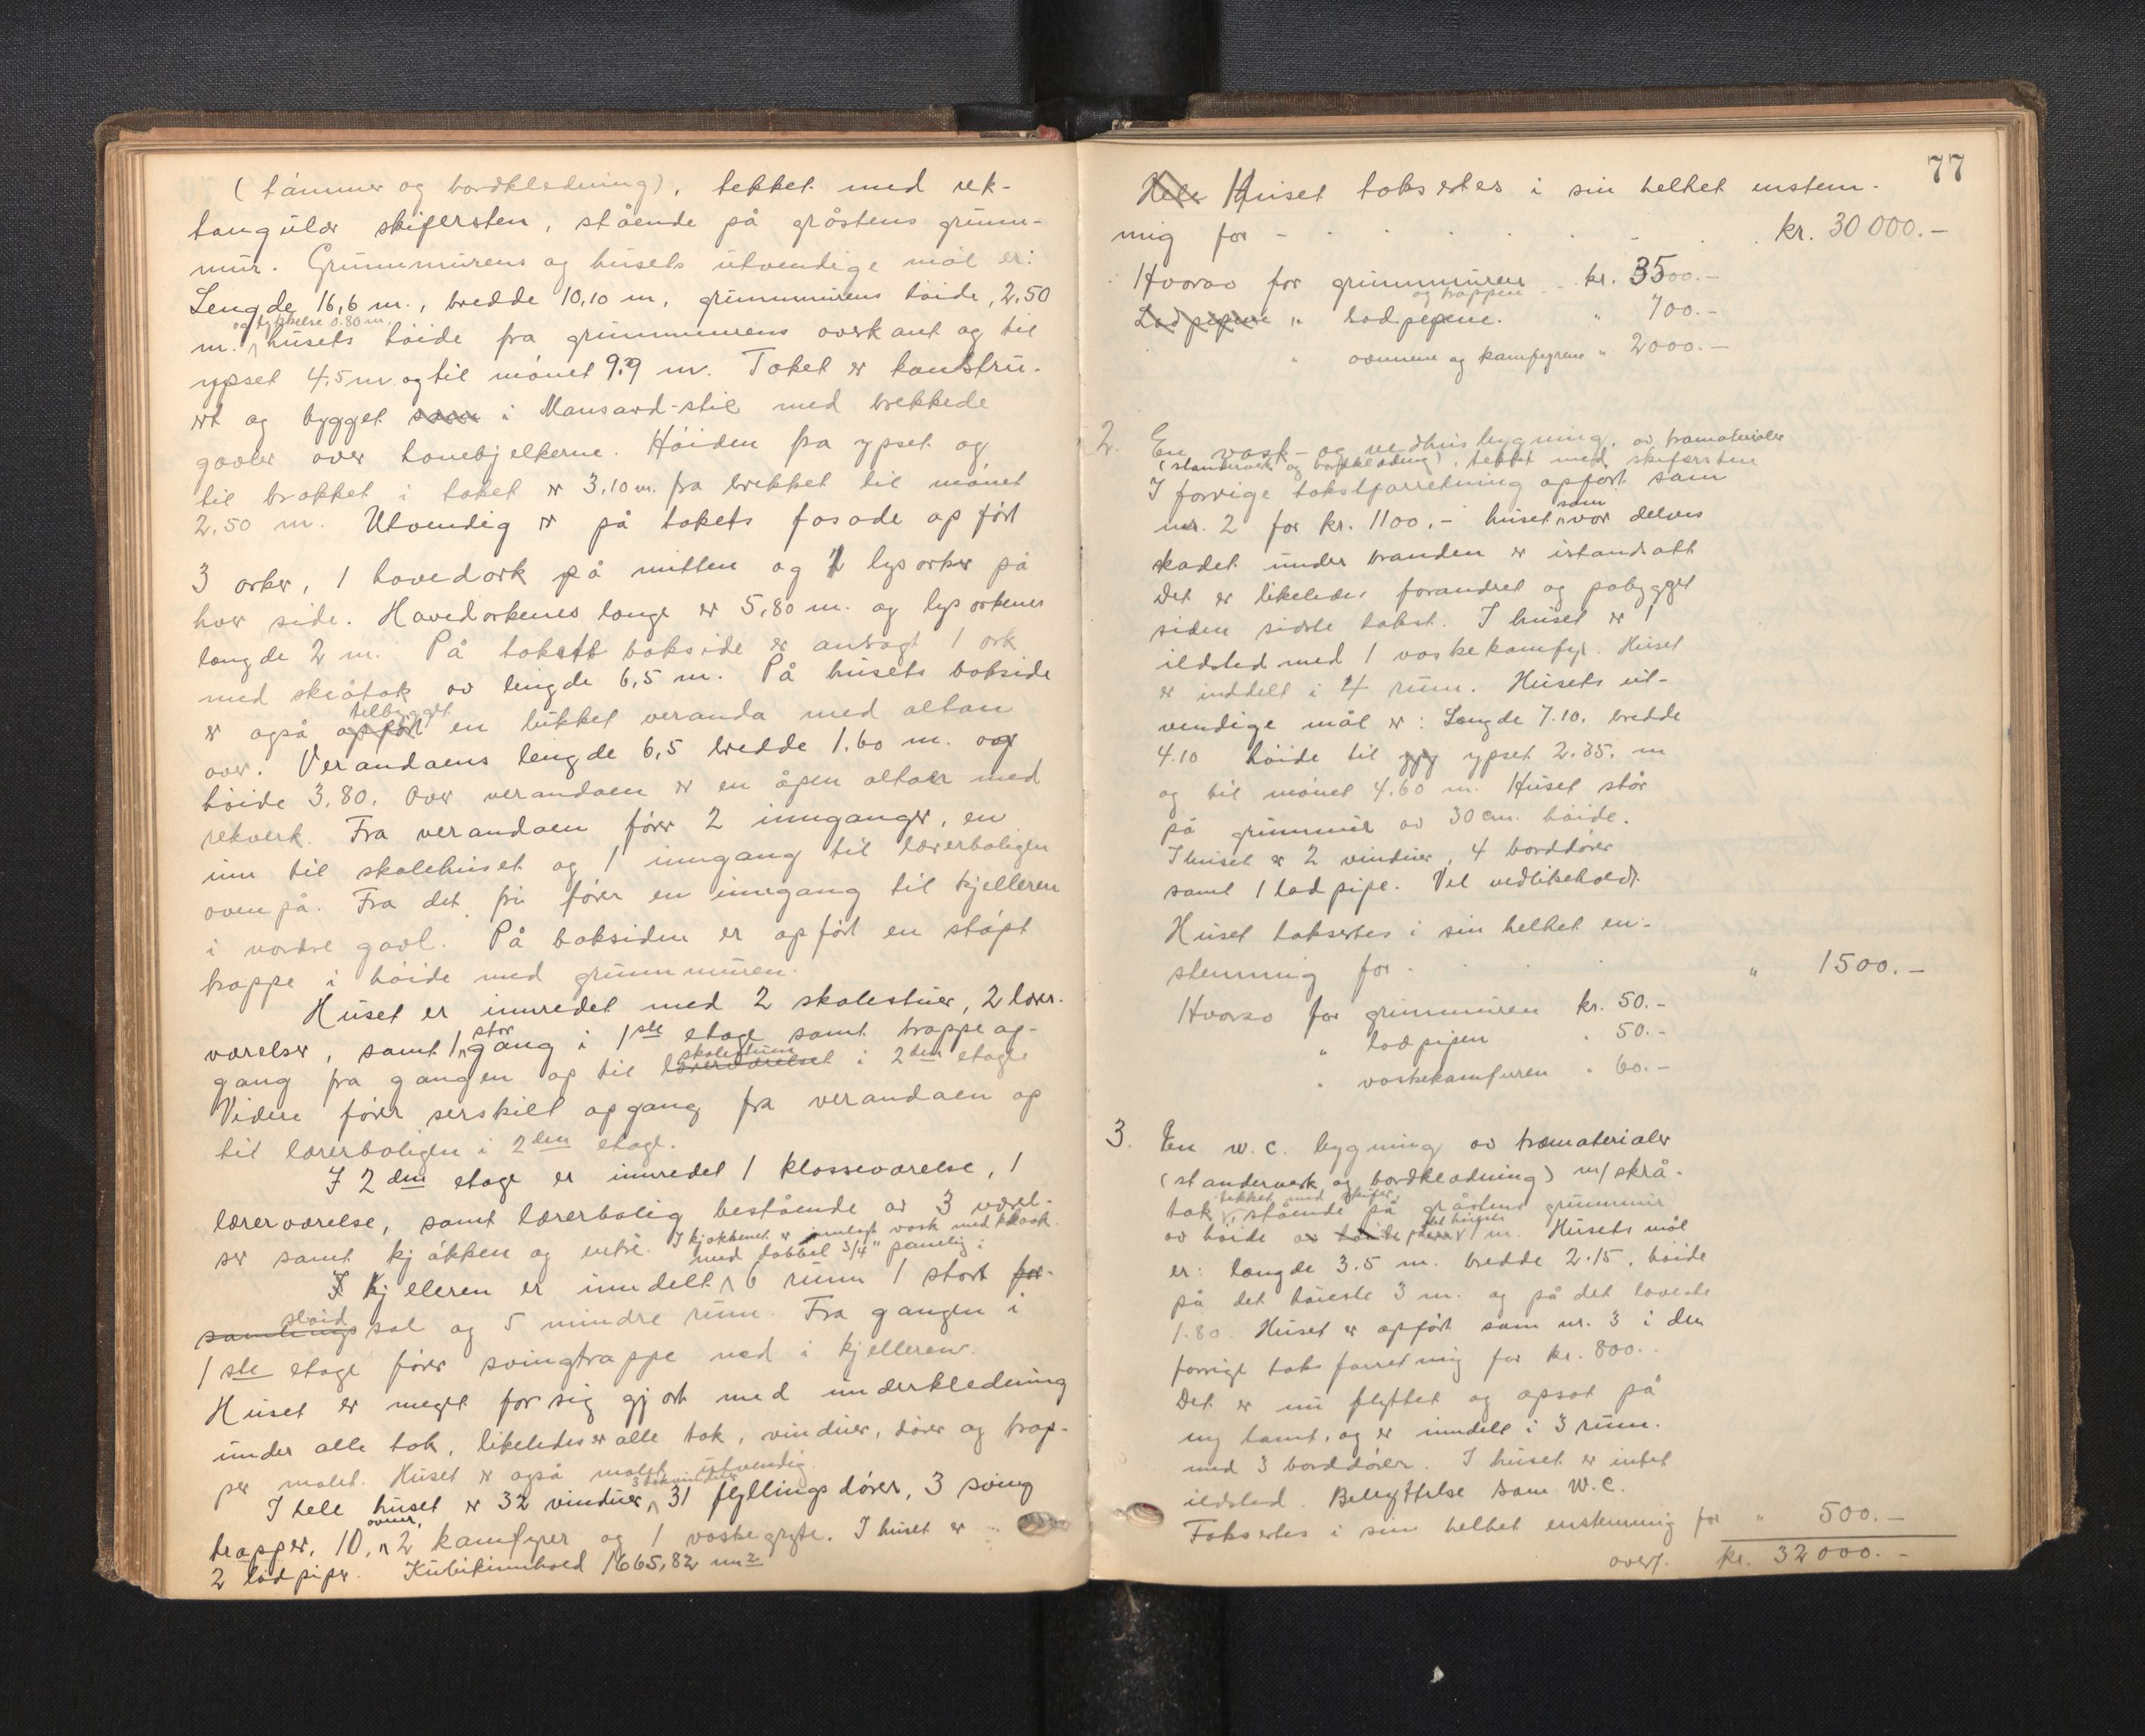 (tømmer og bordkledning), tekket med rek-
tangulær skifersten, stående på gråstens grunn-
mur. Grunnmurens og husets utvendige mål er:
Lengde 16,6 m., bredde 10,10 m, grunnmurens høide, 2,50
og tykkelse 0.80 m.
m. husets høide fra grunnmurens overkant og til
ypset 4,5 m. og til mønet 9.9 m. Taket er konstru-
ert og bygget i Mansard-stil med brekkede
gavler over hanebjelkerne. Høiden fra ypset og
til brakket i taket er 3,10 m. fra brekket til mønet
2,50 m. Utvendig er på takets fasade opført
3 arker, 1 hovedark på mitten og 2 lysarker på
hver side. Hovedarkenes lange er 5,80 m. og lysarkenes
længde 2 m. På takets bakside er anbragt 1 ark
med skråtak av lengde 6,5 m. På husets bakside
tilbygget
er også opført en lukket veranda med altan
over. Verandaens lengde 6,5 bredde 1.60 m. og
høide 3,80. Over verandaen er en åpen altan med
rekverk. Fra verandaen fører 2 innganger, en
inn til skolehuset og 1 inngang til lærerboligen
ovenpå. Fra det fri fører en inngang til kjelleren
i nordre gavl. På baksiden er opført en støpt
trappe i høide med grunnmuren.
Huset er innredet med 2 skolestuer, 2 lærer-
stor
værelser, samt 1 gang i 1ste etage samt trappeop-
skolerum
gang fra gangen op til lærerværelset i 2den etage
Videre fører serskilt opgang fra verandaen op
til lærerboligen i 2den etage.
I 2den etage er innredet 1 klasseværelse, 1
lærerværelse, samt lærerbolig bestående av 3 værel-
ser samt kjøkken og entré. I kjøkkenet er innlagt vask med kloak.
med dobbel 3/4" panelig i
I kjelleren er inndelt 6 rum 1 stort for-
sløid
samlingssal og 5 mindre rum. Fra gangen i
1ste etage fører svingtrappe ned i kjelleren.
Huset er meget forsiggjort med underkledning
under alle tak, likeledes er alle tak, vinduer, dører og trap-
per malet. Huset er også malet utvendig.
I hele huset er 32 vinduer, 31 fyllingsdører, 3 sving
ovner,
trapper, 10, 2 kamfyrer og 1 vaskegryte. I huset er
2 lodpiper. Kubikinnhold 1665,82 m2
77
Hele Huset takseres i sin helhet enstem-
mig for kr. 30 000.-
Hvorav for grunnmuren kr. 3500.-
og trappen
Lodpipene " lodpipene. " 700.-
" ovnnene og kamfyrene " 2000.-
2. En vask- og vedhusbygning, av træmaterialer
(standerverk og bordkledning), tekket med skifersten
I forrige takstforretning opført som
som
nr. 2 for kr. 1100.- huset var delvis
skadet under branden er istandsatt
Det er likeledes forandret og påbygget
siden sidste takst. I huset er 1
ildsted med 1 vaskekamfyr. Huset
er inddelt i 4 rum. Husets ut-
vendige mål er: Længde 7.10. bredde
4.10 høide til ypset 2.35. m
og til mønet 4.60 m. Huset står
på grunnmur av 30 cm. høide.
I huset er 2 vinduer, 4 borddører
samt 1 lodpipe. Vel vedlikeholdt
Huset takseres i sin helhet en-
stemmig for " 1500.-
Hvorav for grunnmuren kr. 50.-
" lodpipen " 50.-
" vaskekamfyren " 60.-
3. En w.c. bygning av træmaterialer
(standerverk og bordkledning) m/ skrå-
tekket med skifer,
tak, stående på gråstens grunnmur
av høide 1 m. Husets mål
er: længde 3.5 m. bredde 2.15, høide
på det høieste 3 m. og på det laveste
1.80. Huset er opført som nr. 3 i den
forrige taksforretning for kr. 800.-
Det er nu flyttet og opsat på
ny tomt, og er inndelt i 3 rum.
med 3 borddører. I huset er intet
ildsted. Benyttelse som W.C.
Takseres i sin helhet enstemmig for " 500.-
overf. kr. 32 000.-